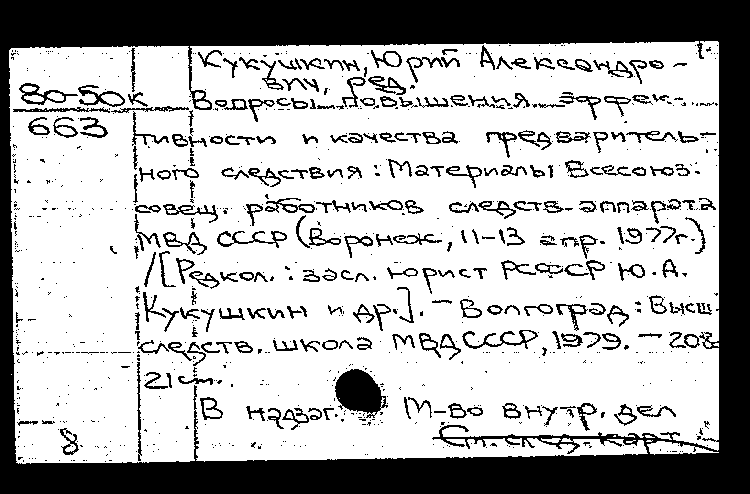 1.
Кукушкин, Юрий Александро-
вич, ред.
80-50к Вопросы повышения эффек-
663
тивности и качества предваритель-
ного следствия : Материалы Всесоюз.
совещ. работников следств. аппарата
МВД СССР (Воронеж, 11-13 апр. 1977г.)
/[Редкол. : засл. юрист РСФСР Ю.А.
Кукушкин и др.]. – Волгоград : Высш.
следств. школа МВД СССР, 1979. – 208с
21 см.
В надзаг. М-во внутр. дел
См. след. карт.
8